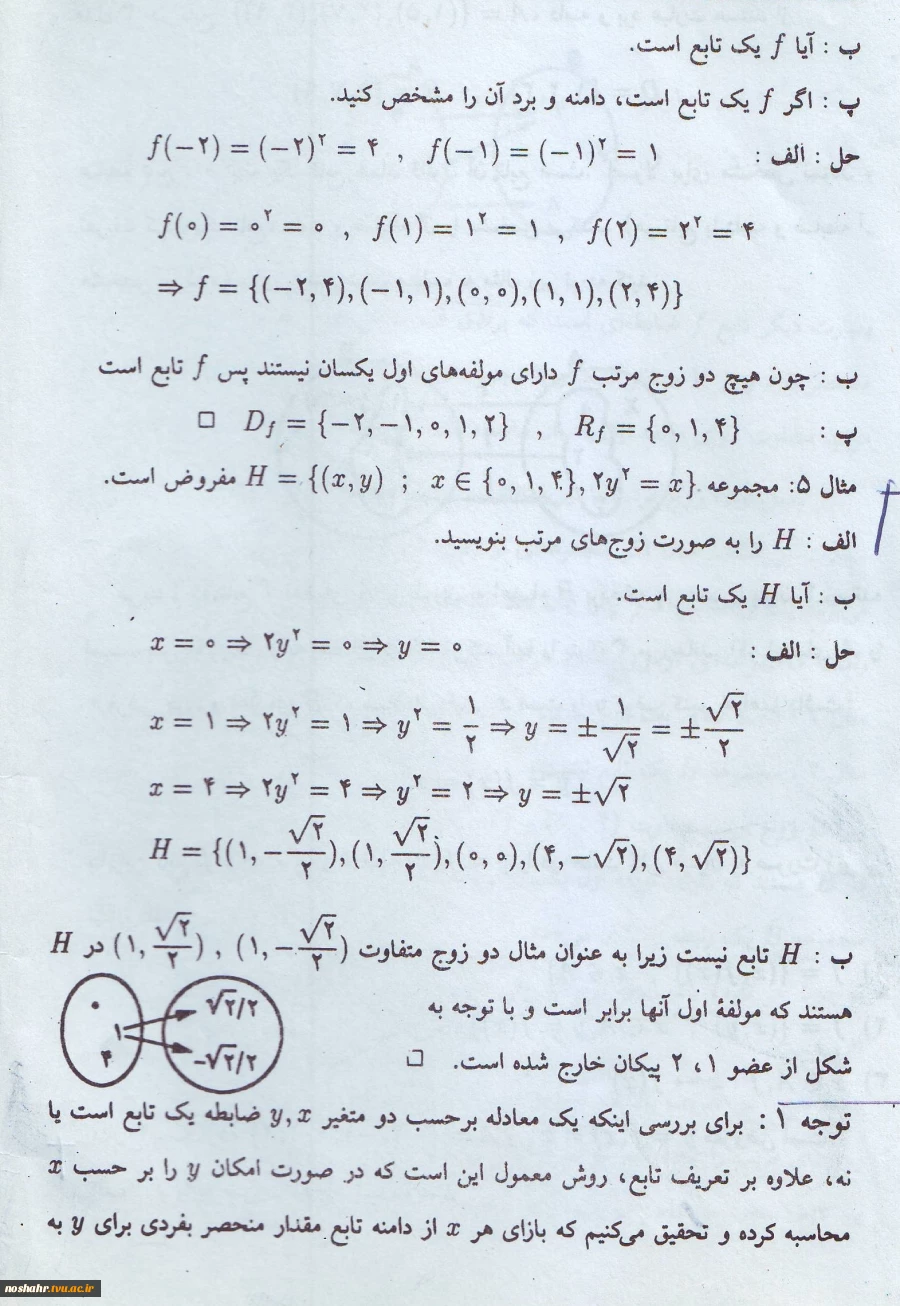 ب : آیا f یک تابع است.
پ : اگر f یک تابع است، دامنه و برد آن را مشخص کنید.
حل : الف : f(−۲) = (−۲)^۲ = ۴ , f(−۱) = (−۱)^۲ = ۱
f(۰) = ۰^۲ = ۰ , f(۱) = ۱^۲ = ۱ , f(۲) = ۲^۲ = ۴
⇒ f = {(−۲, ۴), (−۱, ۱), (۰, ۰), (۱, ۱), (۲, ۴)}
ب : چون هیچ دو زوج مرتب f دارای مولفه‌های اول یکسان نیستند پس f تابع است
پ : D_f = {−۲, −۱, ۰, ۱, ۲} , R_f = {۰, ۱, ۴} □
مثال ۵: مجموعه H = {(x, y) ; x ∈ {۰, ۱, ۴}, ۲y^۲ = x} مفروض است.
الف : H را به صورت زوج‌های مرتب بنویسید.
ب : آیا H یک تابع است.
حل : الف : x = ۰ ⇒ ۲y^۲ = ۰ ⇒ y = ۰
x = ۱ ⇒ ۲y^۲ = ۱ ⇒ y^۲ = ۱/۲ ⇒ y = ±۱/√۲ = ±√۲/۲
x = ۴ ⇒ ۲y^۲ = ۴ ⇒ y^۲ = ۲ ⇒ y = ±√۲
H = {(۱, −√۲/۲), (۱, √۲/۲), (۰, ۰), (۴, −√۲), (۴, √۲)}
ب : H تابع نیست زیرا به عنوان مثال دو زوج متفاوت (۱, −√۲/۲) , (۱, √۲/۲) در H
هستند که مولفهٔ اول آنها برابر است و با توجه به
شکل از عضو ۱، ۲ پیکان خارج شده است. □
۰
۱
۴
√۲/۲
−√۲/۲
توجه ۱ : برای بررسی اینکه یک معادله برحسب دو متغیر y, x ضابطه یک تابع است یا
نه، علاوه بر تعریف تابع، روش معمول این است که در صورت امکان y را بر حسب x
محاسبه کرده و تحقیق می‌کنیم که بازای هر x از دامنه تابع مقدار منحصر بفردی برای y به
noshahr.tvu.ac.ir